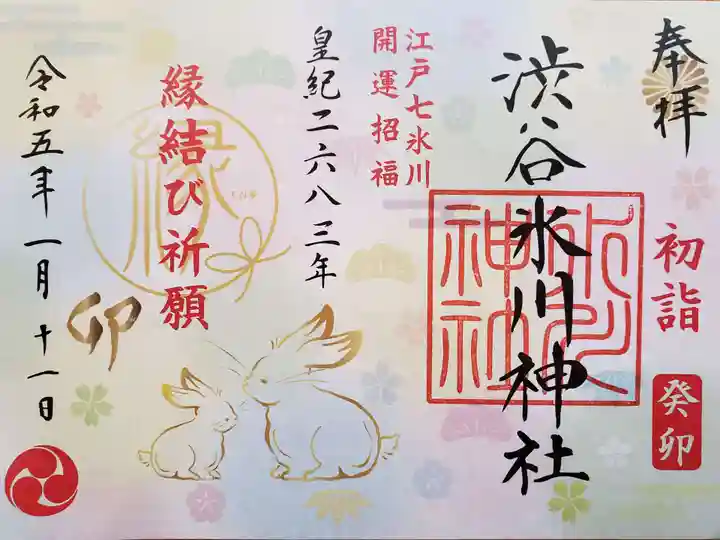 奉拝
初詣
癸卯
渋谷氷川神社
氷川
神社
江戸七氷川
開運招福
皇紀二六八三年
縁結び祈願
縁
卯
令和五年一月十一日